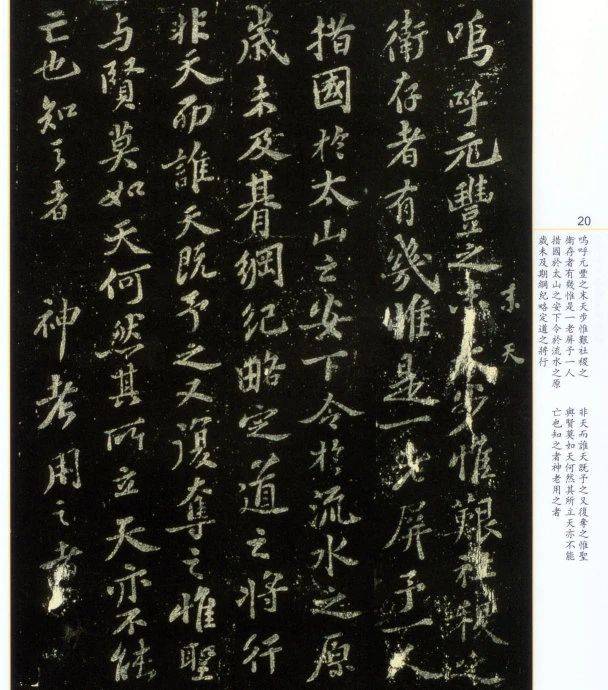 20
嗚呼元豐之末天步惟艱社稷之
衛存者有幾惟是一老屏予一人
措國於太山之安下令於流水之原
歲未及期綱紀略定道之將行
非天而誰天既予之又復奪之惟聖
與賢莫如天何然其所立天亦不能
亡也知之者神老用之者
末天
嗚呼元豐之末天步惟艱社稷之
衛存者有幾惟是一老屏予一人
措國於太山之安下令於流水之原
歲未及朞綱紀略定道之將行
非天而誰天既予之又復奪之惟聖
与賢莫如天何然其所立天亦不能
亡也知之者神考用之者